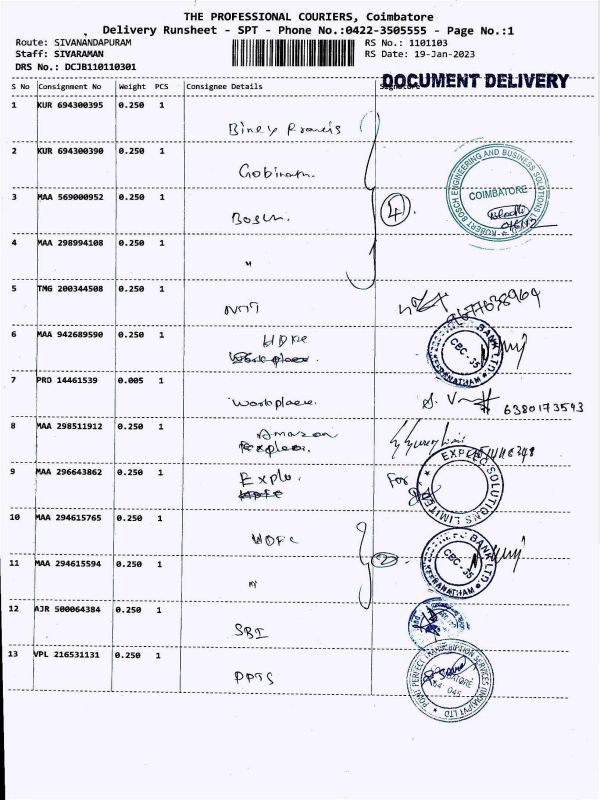 THE PROFESSIONAL COURIERS, Coimbatore
Delivery Runsheet - SPT - Phone No.:0422-3505555 - Page No.:1
Route: SIVANANDAPURAM
RS No.: 1101103
Staff: SIVARAMAN
RS Date: 19-Jan-2023
DRS No.: DCJB110110301
DOCUMENT DELIVERY
S No Consignment No Weight PCS Consignee Details Signature
1 KUR 694300395 0.250 1
2 KUR 694300390 0.250 1 Gobinath.
3 MAA 569000952 0.250 1 Bosch. 4
ROBERT BOSCH ENGINEERING AND BUSINESS SOLUTIONS LTD
COIMBATORE
4 MAA 298994108 0.250 1 "
5 TMG 200344508 0.250 1 NTT
6 MAA 942689590 0.250 1 HDFC
BANK LTD. KEERANATHAM
CBC - 35
7 PRO 14461539 0.005 1 Workplace. 6380173593
8 MAA 298511912 0.250 1 Amazon
9 MAA 296643862 0.250 1 Explo. For
EXPLEO SOLUTIONS LIMITED
10 MAA 294615765 0.250 1 HDFC 2
11 MAA 294615594 0.250 1 "
BANK LTD. KEERANATHAM
CBC - 35
12 AJR 500064384 0.250 1 SBI
13 VPL 216531131 0.250 1 PPTS
POINT PERFECT TRANSCRIPTION SERVICES (INDIA) PVT LTD